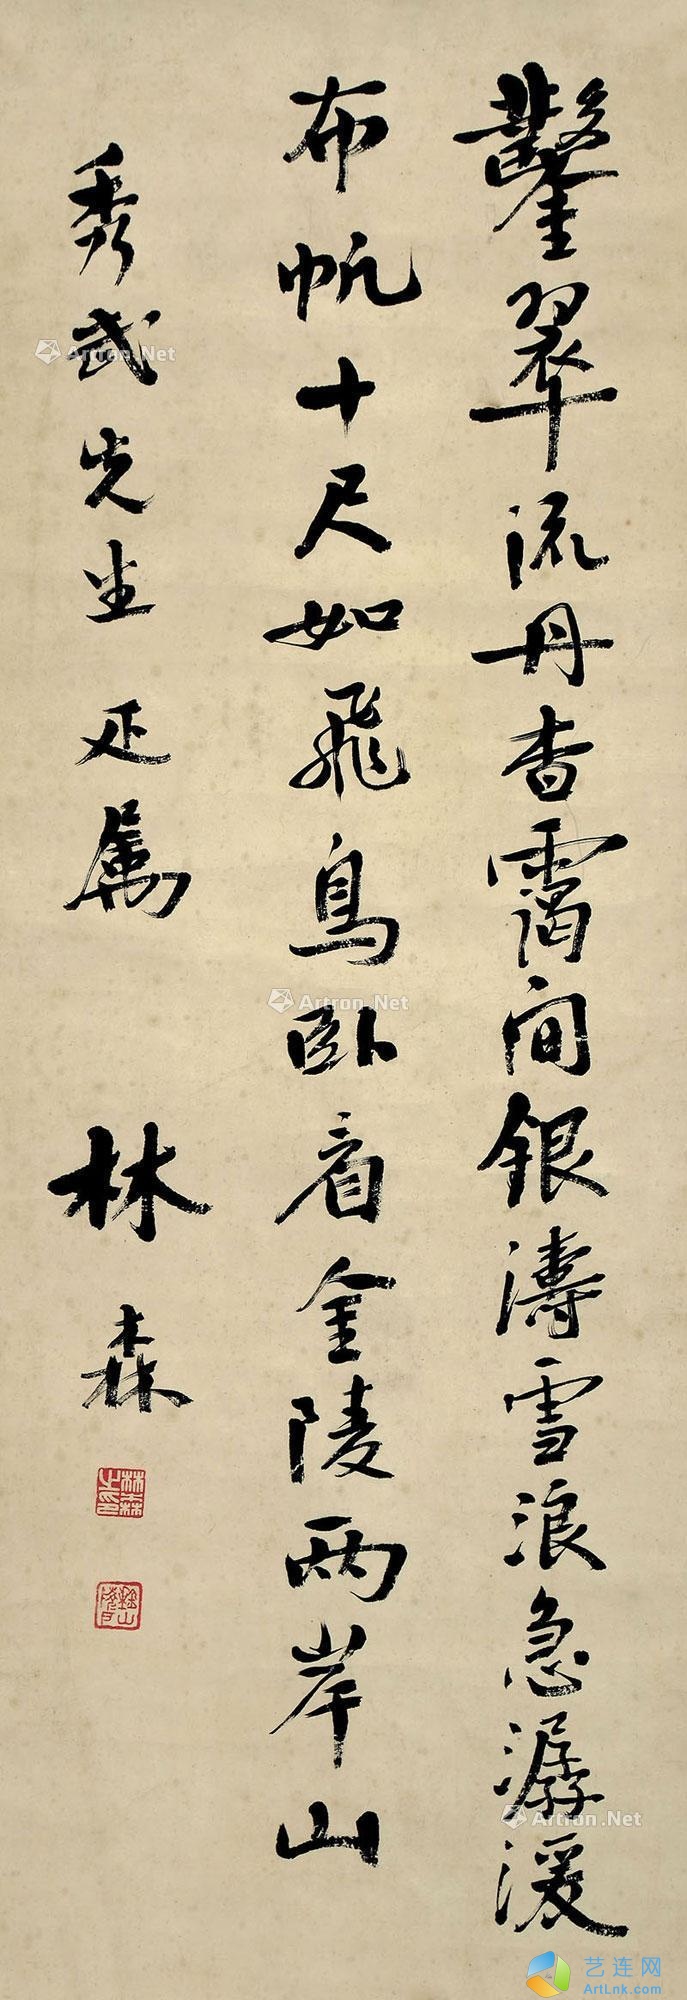 鑿翠流丹杳靄间銀濤雪浪急潺湲
布帆十尺如飛鳥卧看金陵兩岸山
秀武先生 疋属
林森
林森之印
Artron.Net
Artron.Net
Artron.Net
艺连网
ArtLnk.com